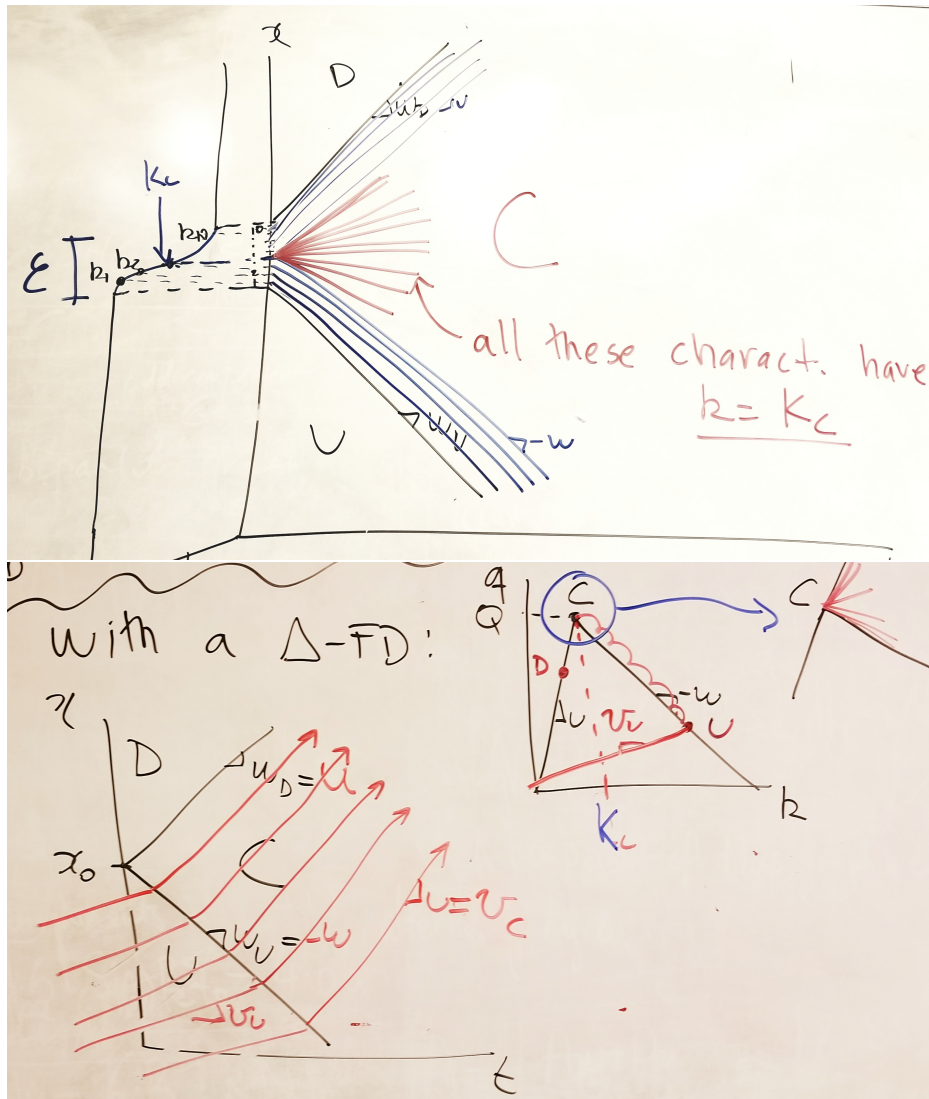 x
D
u
K_c
k_1
k_2
ε
C
all these charact. have
k = K_c
w_U
-w
U
D
with a Δ-FD:
q
Q
C
C
D
-w
u
v_U
U
k
K_c
x
D
w_D = u
x_0
C
u = v_C
w_U = -w
U
v_U
t